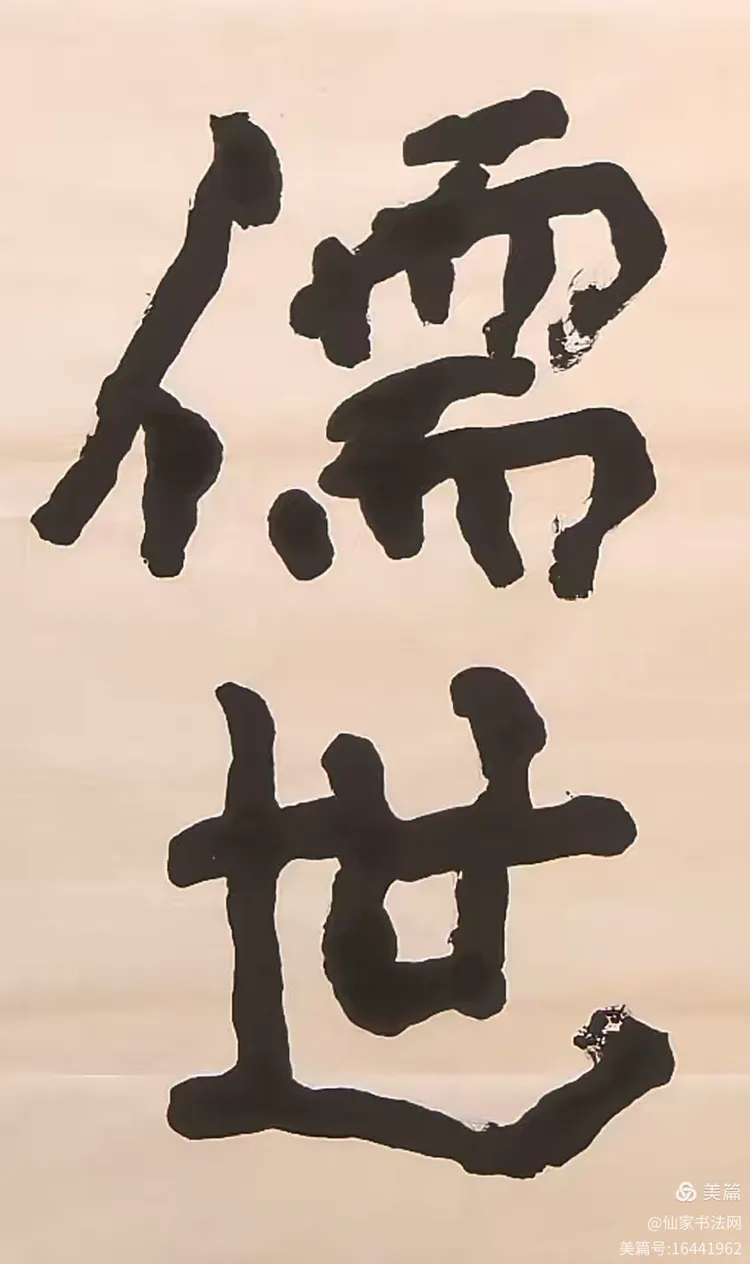 儒
世
美篇
@仙家书法网
美篇号:16441962